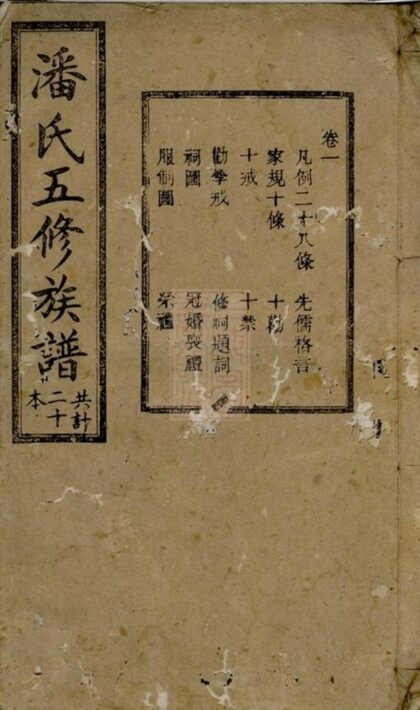 潘氏五修族譜
共計二十本
卷一
凡例二十八條 先儒格言
家規十條 十勸
十戒 十禁
勸學戒 修祠題詞
祠圖 冠婚喪禮
服制圖 祭禮